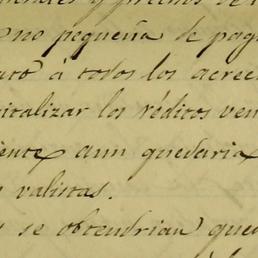 y precios de
no pequeña de pag
á todos los acree
italizar los réditos ven
iente aun quedaria
valistas.
se obtendrian que